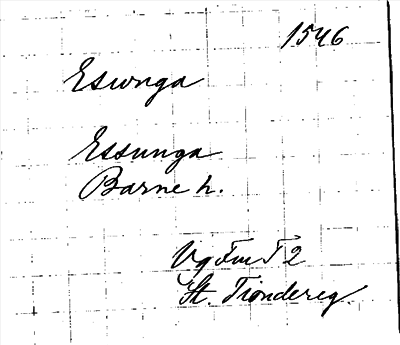 1546
Esunga
Essunga
Barne h.
Vg Fm T 2
St. Tiondereg.